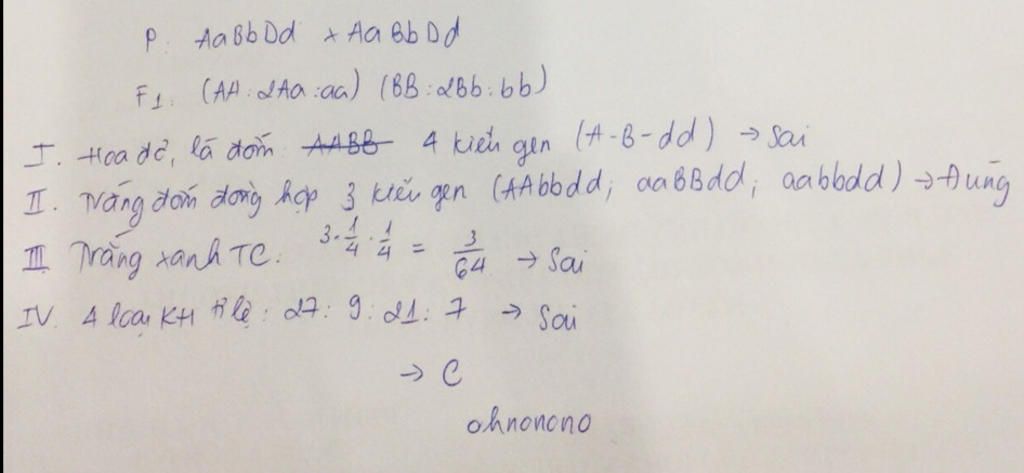 P: AaBbDd x AaBbDd
F1: (AA:2Aa:aa) (BB:2Bb:bb)
I. Hoa đỏ, lá đốm AABB 4 kiểu gen (A-B-dd) → Sai
II. Trắng đốm đồng hợp 3 kiểu gen (AAbbdd; aaBBdd; aabbdd) → Đúng
III Trắng xanh TC: 3.1/4.1/4 = 3/64 → Sai
IV. 4 loại KH tỉ lệ: 27:9:21:7 → Sai
→ C
ohnonono